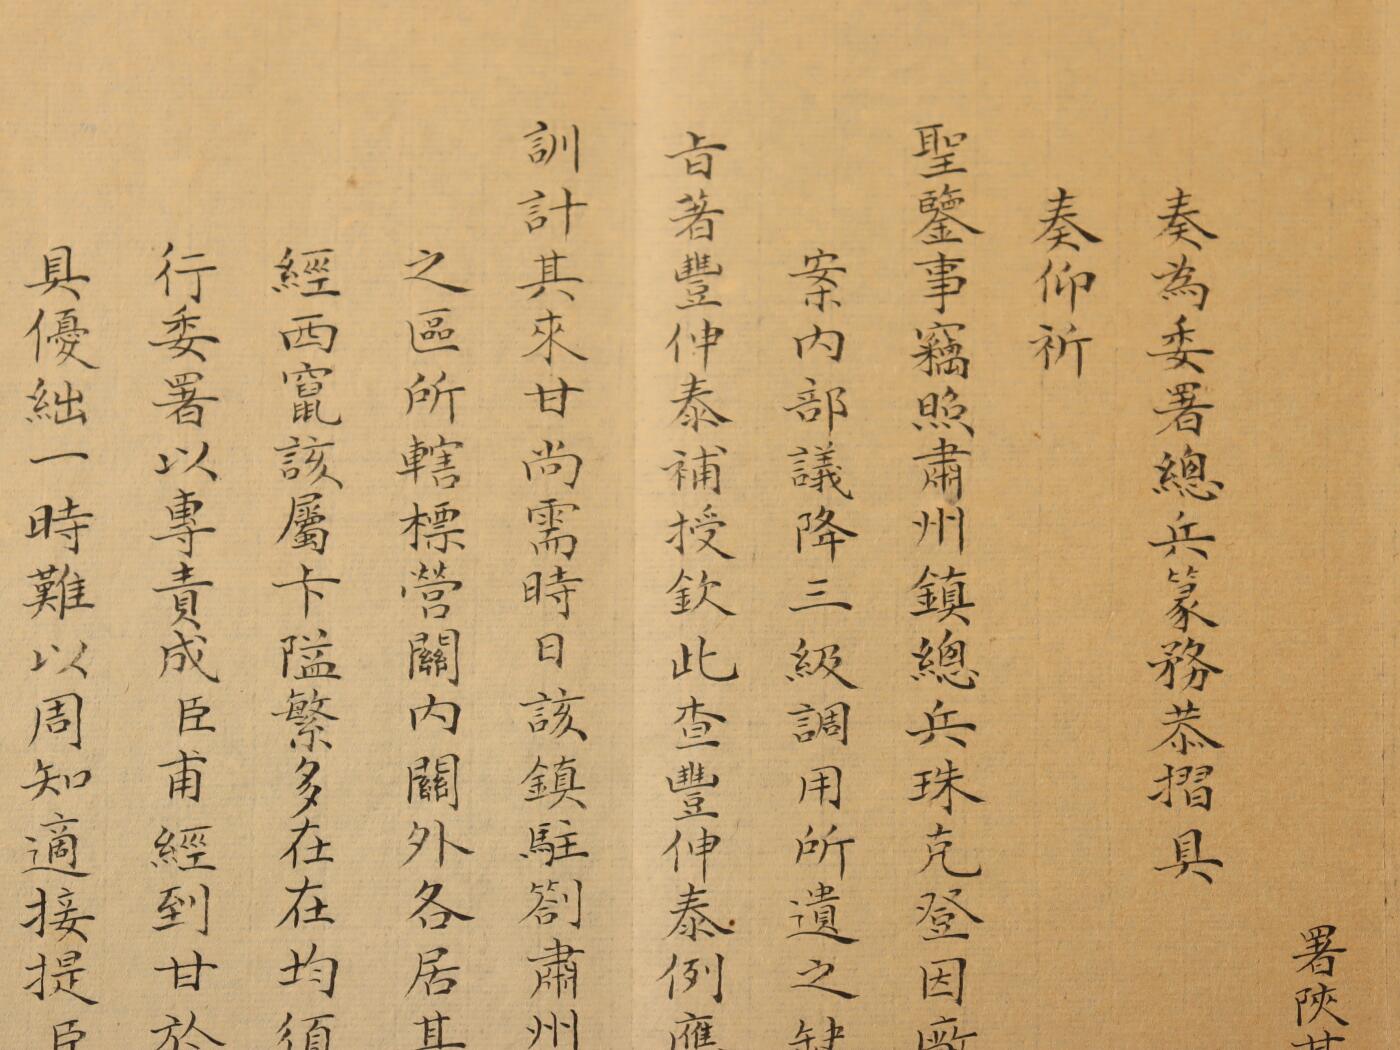 署陝甘
奏為委署總兵篆務恭摺具
奏仰祈
聖鑒事竊照肅州鎮總兵珠克登因廠
案內部議降三級調用所遺之缺
旨著豐伸泰補授欽此查豐伸泰例應
訓計其來甘尚需時日該鎮駐劄肅州
之區所轄標營關內關外各居其
經西竄該屬卡隘繁多在在均須
行委署以專責成臣甫經到甘於
具優絀一時難以周知適接提臣